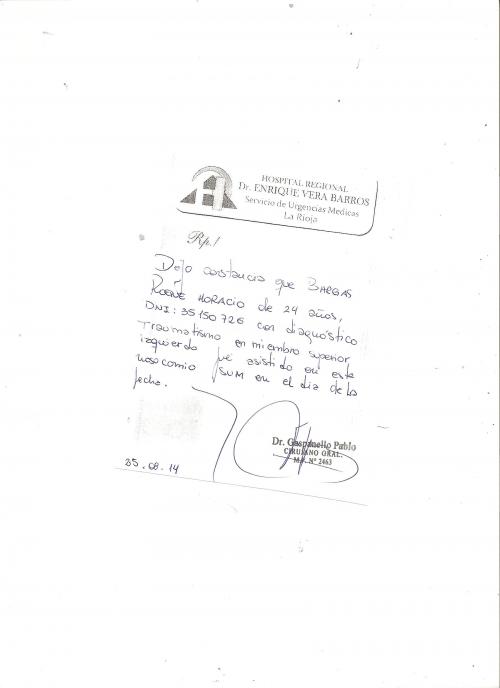 HOSPITAL REGIONAL
Dr. ENRIQUE VERA BARROS
Servicio de Urgencias Medicas
La Rioja
Rp./
Dejo constancia que BARGAS
ROQUE HORACIO de 24 años,
DNI: 35150726 con diagnóstico
traumatismo en miembro superior
izquierdo fué asistido en este
nosocomio SUM en el día de la
fecha.
Dr. Gaspanello Pablo
CIRUJANO GRAL.
M.P. Nº 2463
.08.14